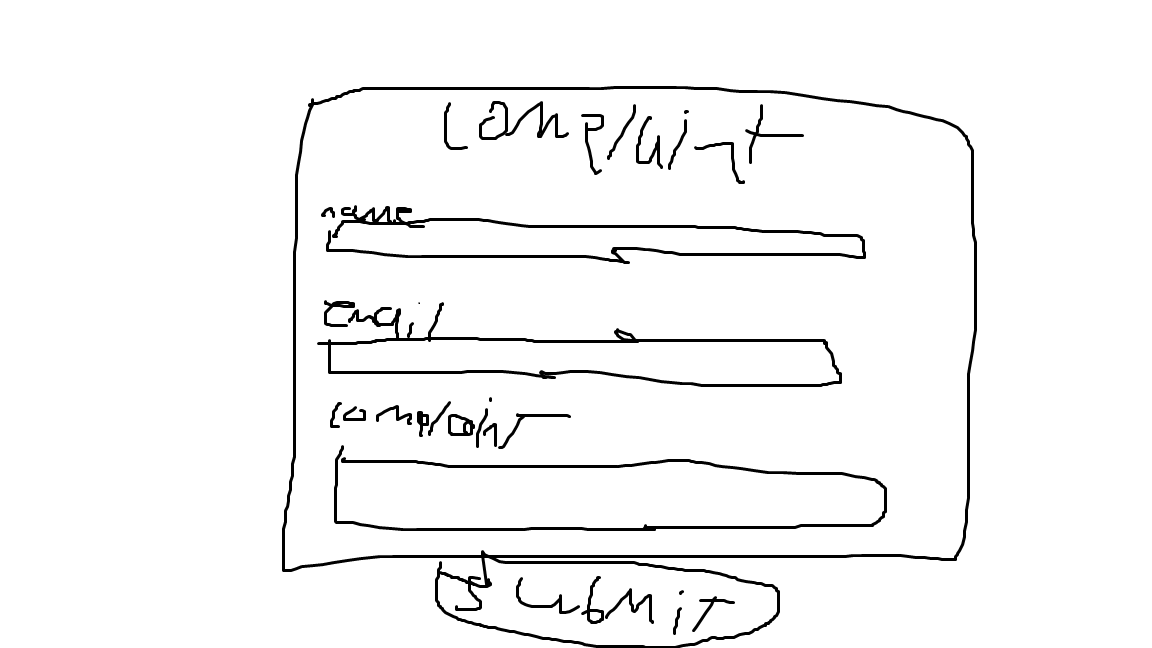 complaint
name
email
complaint
submit